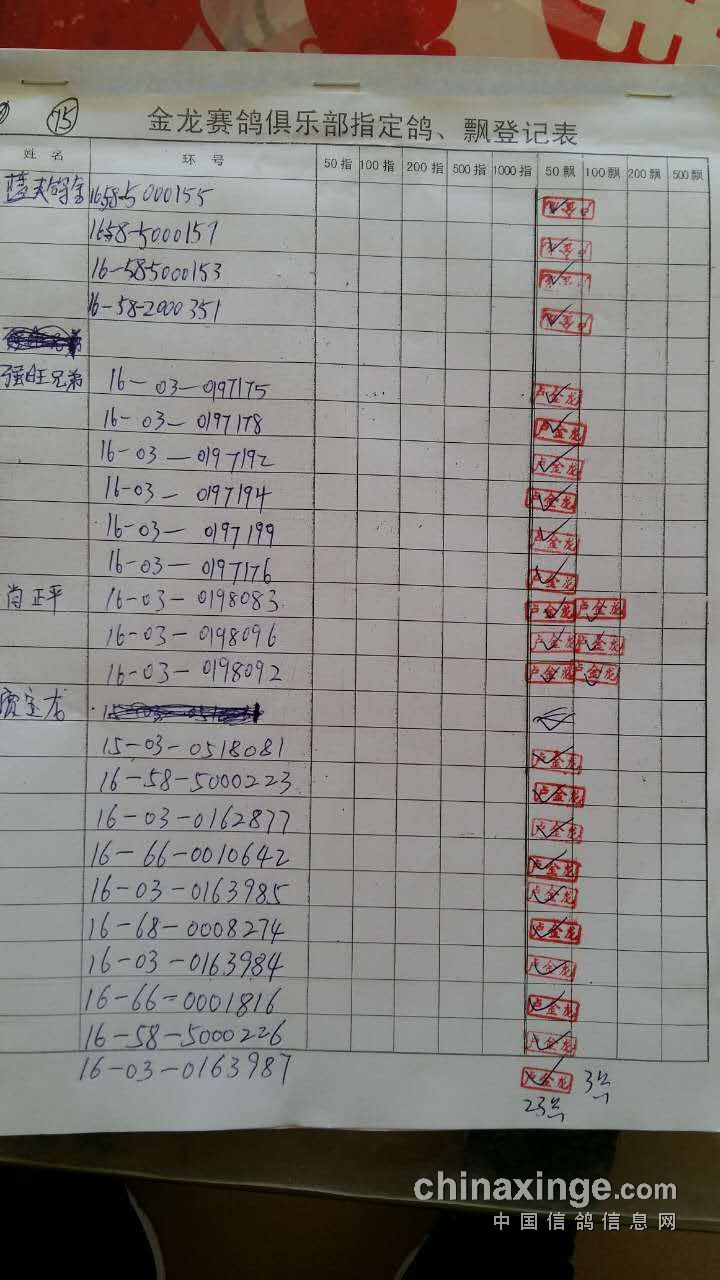 75
金龙赛鸽俱乐部指定鸽、飘登记表
姓 名 环 号 50指 100指 200指 500指 1000指 50飘 100飘 200飘 500飘
1658-5000155
1658-5000157
16-58-5000153
16-58-2000351
强旺兄弟 16-03-0197175 卢金龙
16-03-0197178 卢金龙
16-03-0197192 卢金龙
16-03-0197194 卢金龙
16-03-0197199 卢金龙
16-03-0197176 卢金龙
肖正平 16-03-0198083 卢金龙 卢金龙
16-03-0198096 卢金龙 卢金龙
16-03-0198092 卢金龙 卢金龙
贾宝龙
15-03-0518081 卢金龙
16-58-5000223 卢金龙
16-03-0162877 卢金龙
16-66-0010642 卢金龙
16-03-0163985 卢金龙
16-68-0008274 卢金龙
16-03-0163984 卢金龙
16-66-0001816 卢金龙
16-58-5000226 卢金龙
16-03-0163987 卢金龙 3
23
chinaxinge.com
中国信鸽信息网